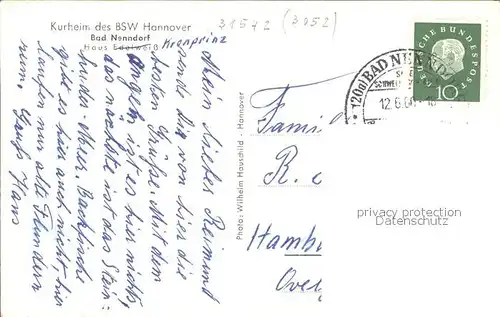 31572 (3052)
Kurheim des BSW Hannover
Bad Nenndorf
Haus Edelweiß Kronprinz
Mein lieber Reimund
sende dir von hier die
besten Grüße. Mit dem
Angeln ist es hier nichts,
das nächste ist das Stein-
huder Meer. Backfische
gibt es hier auch nicht, hier
laufen nur alte Flundern
rum. Gruß Hans
Photo: Wilhelm Hauschild - Hannover
DEUTSCHE BUNDESPOST
10
(20a) BAD NENNDO
SCHWE
12.6.
Famil
R.
Hamb
Over
privacy protection
Datenschutz